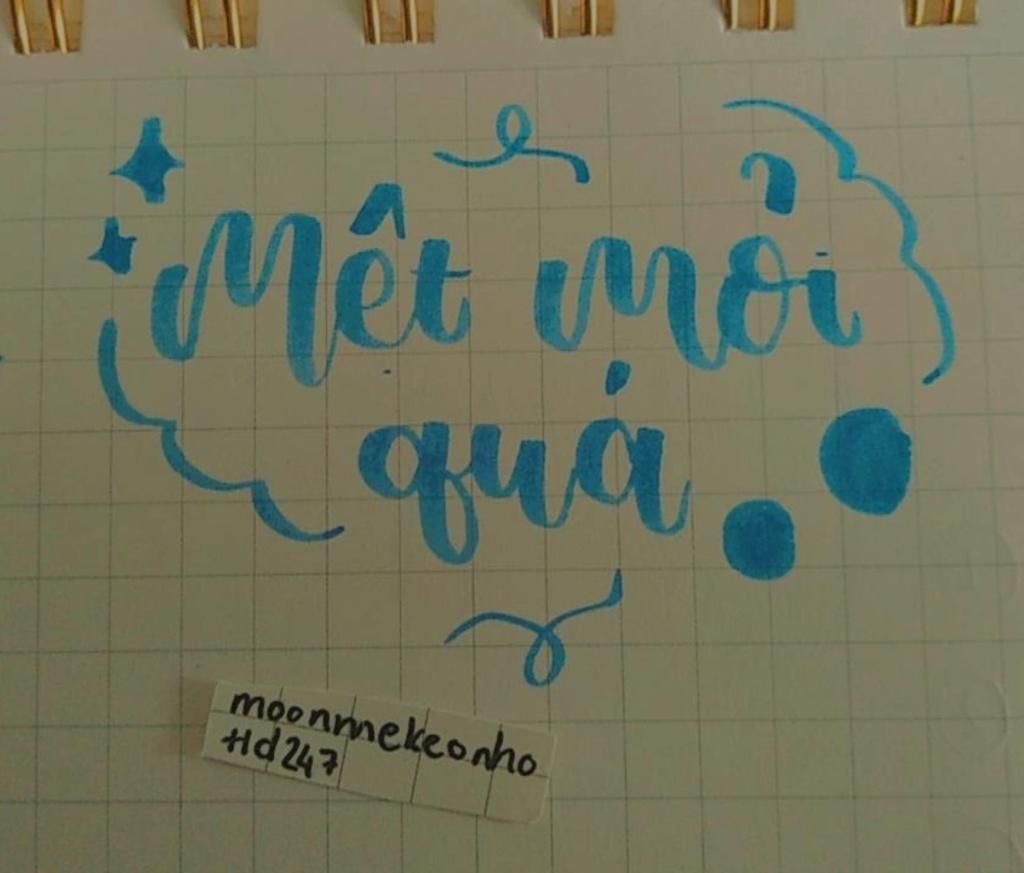 Mệt mỏi
quá
moonmekeonho
Hd247